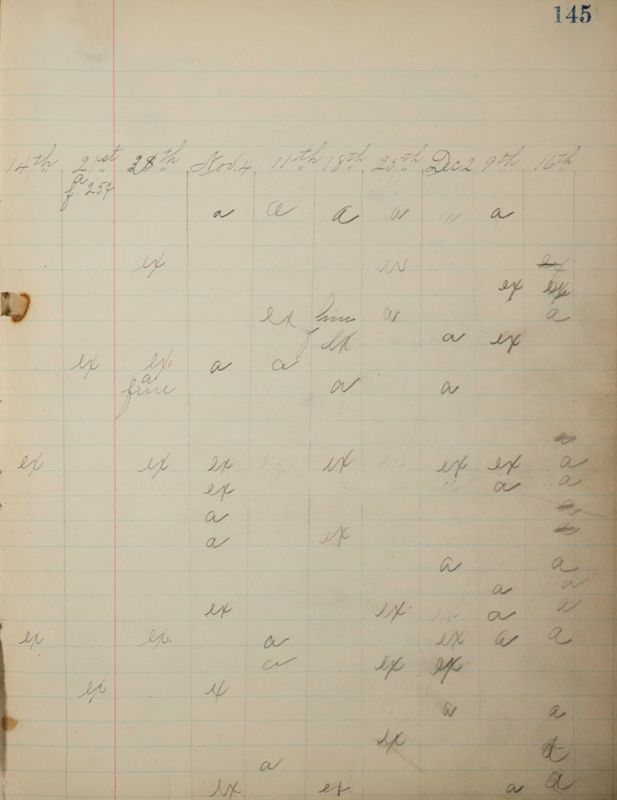 145
14th 21st 28th Nov. 4 11th 18th 25th Dec 2 9th 16th
a
f. 25¢
a a a a a a
ex ex
ex ex
ex fine a a
ex a ex
ex ex a a
a
fine a a
a
ex ex ex ex ex ex ex a
ex a a
a a
a ex a
a a
a a
ex ex ex a a
ex ex a ex a a
a ex ex
ex ex
a a
ex a
a
ex ex a a